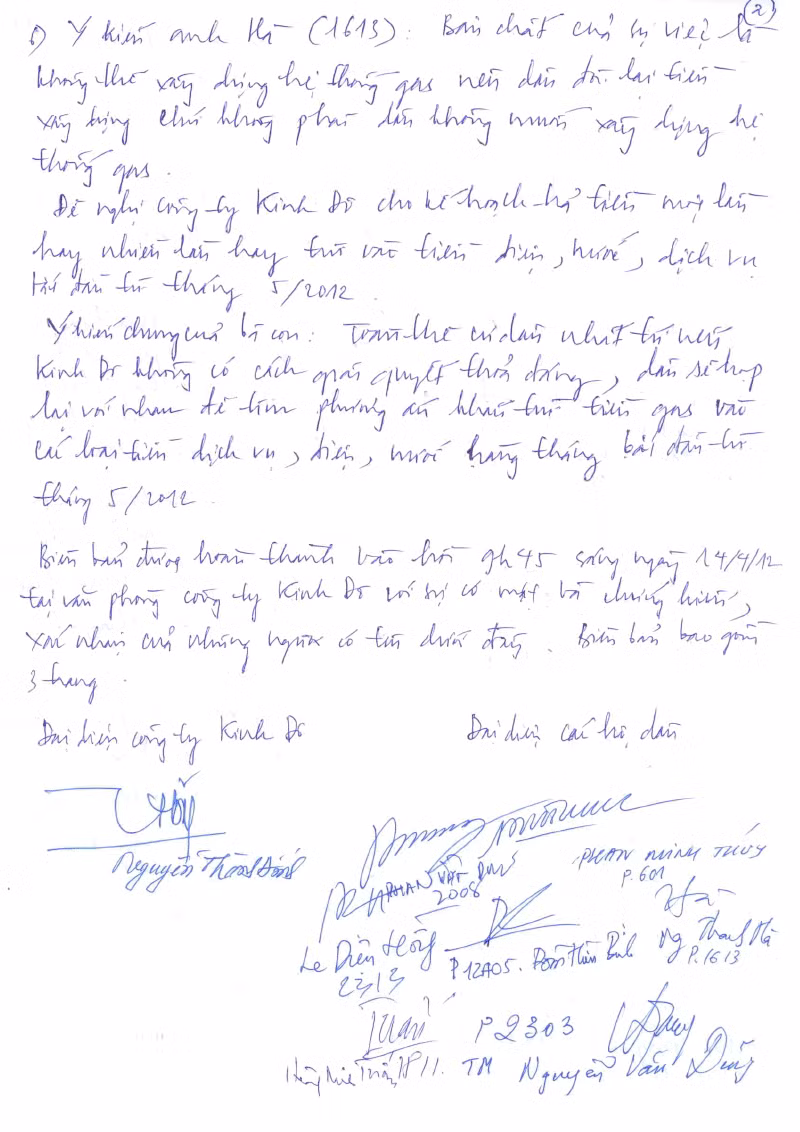 (2)
6) Ý kiến anh Hà (1613): Bản chất của sự việc là
không thể xây dựng hệ thống gas nên dân đòi lại tiền
xây dựng chứ không phải dân không muốn xây dựng hệ
thống gas.
Đề nghị công ty Kinh Đô cho kế hoạch trả tiền một lần
hay nhiều lần hay trừ vào tiền điện, nước, dịch vụ
bắt đầu từ tháng 5/2012.
Ý kiến chung của bà con: Toàn thể cư dân nhất trí nếu
Kinh Đô không có cách giải quyết thoả đáng, dân sẽ họp
lại với nhau để tìm phương án khấu trừ tiền gas vào
các loại tiền dịch vụ, điện, nước hàng tháng bắt đầu từ
tháng 5/2012.
Biên bản được hoàn thành vào hồi 9h45 sáng ngày 14/4/12
tại văn phòng công ty Kinh Đô với sự có mặt và chứng kiến,
xác nhận của những người có tên dưới đây. Biên bản bao gồm
3 trang.
Đại diện công ty Kinh Đô Đại diện các hộ dân
Nguyễn
PHAN MINH THÚY
P.601
PHAN VĂN
2008
Le Diên Hồng
2313
P12A05.
Ng Thanh Hà
P.1613
Tuấn
P2303
TM Nguyễn Văn Dũng